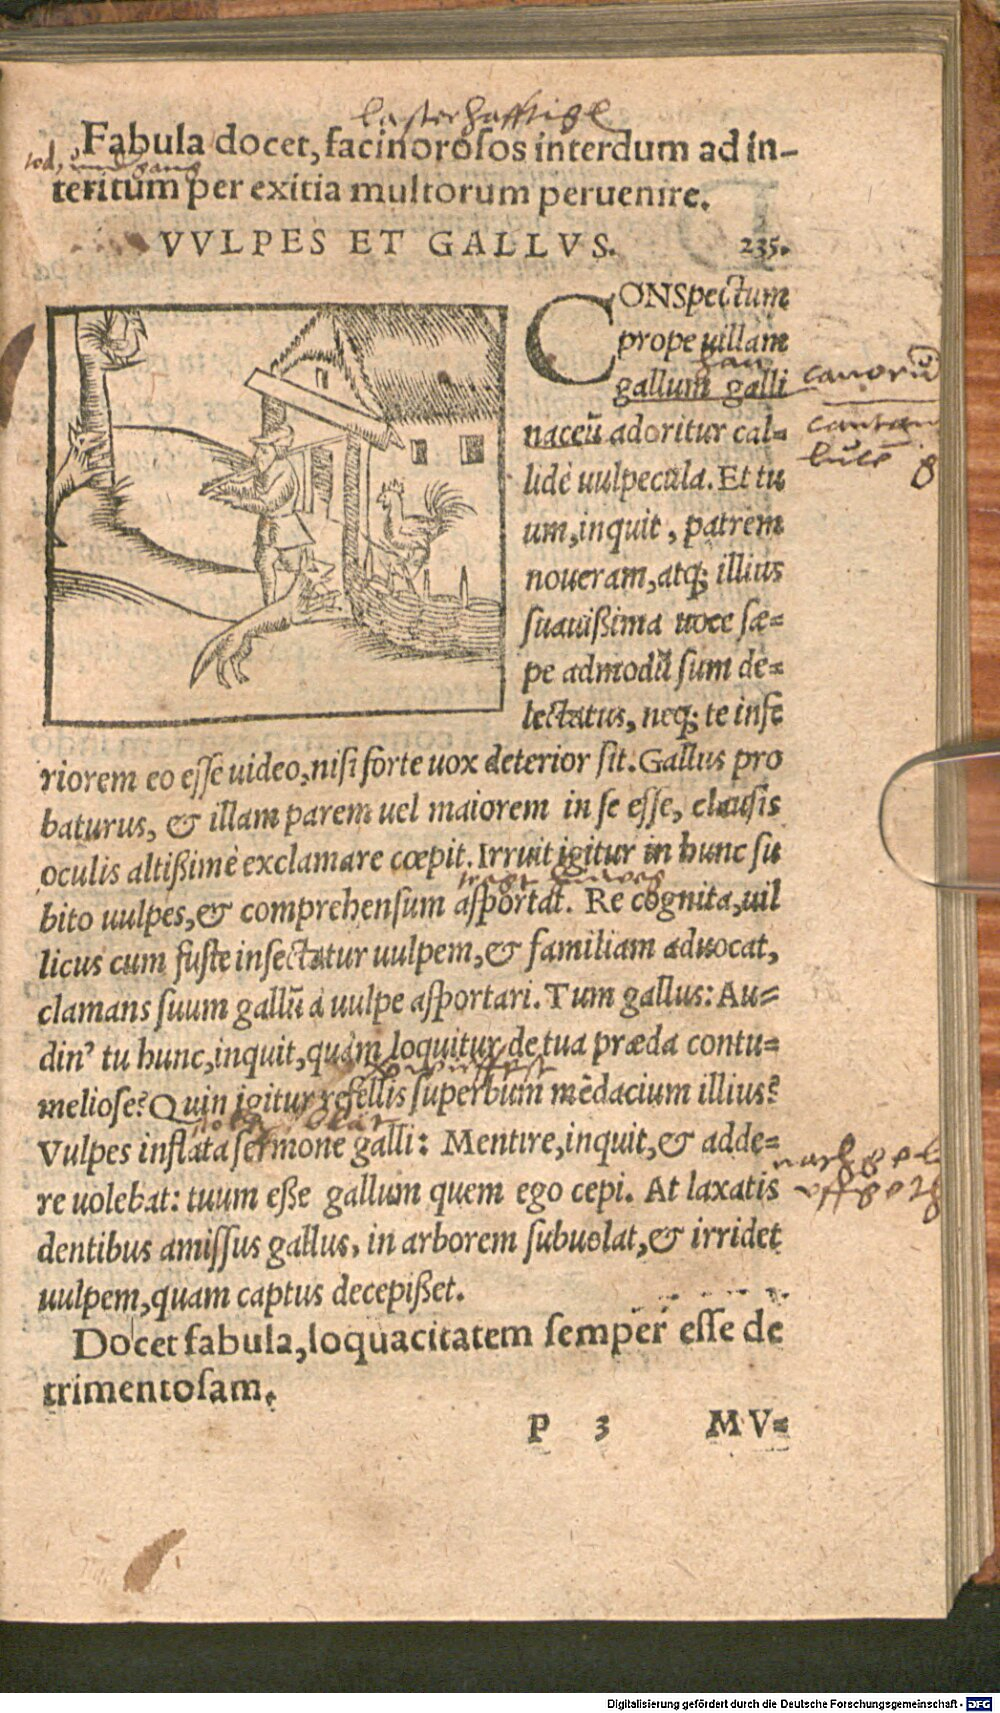 lasterhafftige
Fabula docet, facinoroſos interdum ad in-
tod, undgang
teritum per exitia multorum peruenire.
VVLPES ET GALLVS. 235.
CONSpectum
prope uillam
han
gallum galli canorū
naceū adoritur cal= cantan
lidè uulpecula. Et tu
um, inquit, patrem
noueram, atq; illius
ſuauißima uoce ſæ=
pe admodū ſum de=
lectatus, neq; te infe
riorem eo eſſe uideo, niſi forte uox deterior ſit. Gallus pro
baturus, & illam parem uel maiorem in ſe eſſe, clauſis
oculis altißimè exclamare cœpit. Irruit igitur in hunc ſu
bito uulpes, & comprehenſum aſportat. Re cognita, uil
licus cum fuſte inſectatur uulpem, & familiam aduocat,
clamans ſuum gallū à uulpe aſportari. Tum gallus: Au=
din' tu hunc, inquit, quàm loquitur de tua præda contu=
melioſe? Quin igitur refellis ſuperbum mēdacium illius?
Vulpes inflata ſermone galli: Mentire, inquit, & adde=
re uolebat: tuum eße gallum quem ego cepi. At laxatis
dentibus amiſſus gallus, in arborem ſubuolat, & irridet
uulpem, quam captus decepißet.
Docet fabula, loquacitatem ſemper eſſe de
trimentoſam.
P 3 MV=
Digitalisierung gefördert durch die Deutsche Forschungsgemeinschaft - DFG